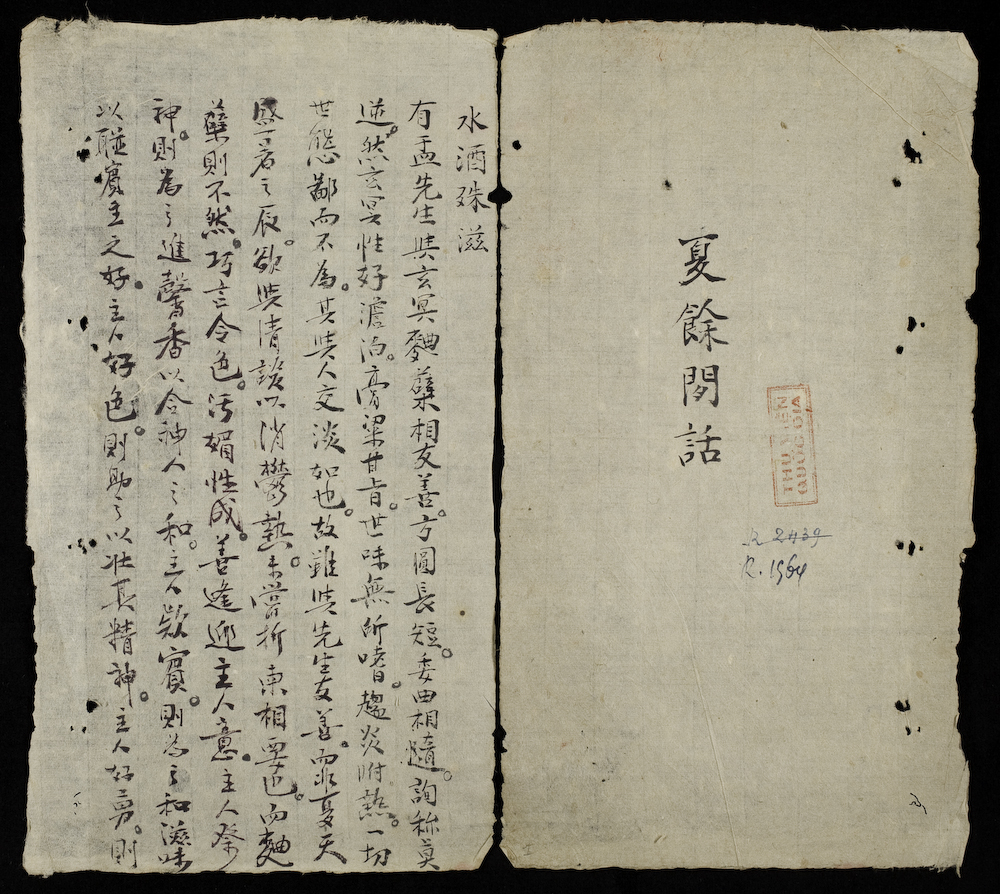 夏餘閒話
THƯ VIỆN
QUỐC GIA
R 2439
R. 1964
水酒殊滋
有盂先生與玄冥麯櫱相友善。方圓長短。委曲相隨。詢称莫
逆。然玄冥性好澹泊。膏粱甘旨。世味無所嗜。趨炎附熱。一切
世態鄙而不為。其與人交淡如也。故雖與先生友善。而非夏天
盛暑之辰。欲與清談以消鬱熱。未嘗折柬相要也。而麯
櫱則不然。巧言令色。污媚性成。善逢迎主人意。主人祭
神。則為之進馨香以合神人之和。主人欵賓。則為之和滋味
以聯賓主之好。主人好色。則助之以壯其精神。主人好勇。則